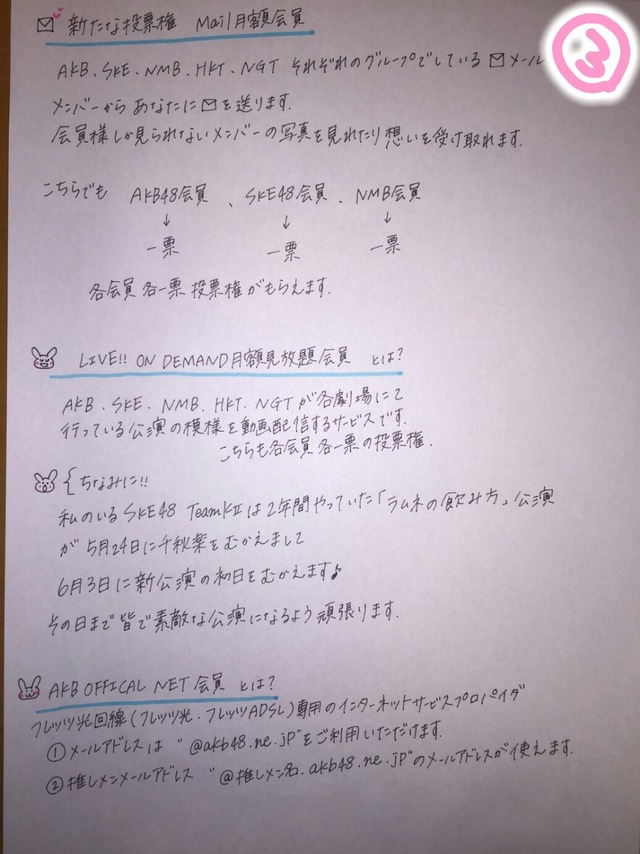 新たな投票権 Mail月額会員
③
AKB、SKE、NMB、HKT、NGT それぞれのグループでしているメール
メンバーから あなたに を送ります.
会員様しか見られないメンバーの写真を見れたり想いを受け取れます.
こちらでも AKB48会員、SKE48会員、NMB会員
↓ ↓ ↓
一票 一票 一票
各会員 各一票 投票権がもらえます.
LIVE!! ON DEMAND月額見放題会員 とは?
AKB、SKE、NMB、HKT、NGTが各劇場にて
行っている公演の模様を動画配信するサービスです.
こちらも各会員 各一票の投票権.
{ちなみに!!
私のいるSKE48 TeamKⅡは2年間やっていた「ラムネの飲み方」公演
が5月24日に千秋薬をむかえまして
6月3日に新公演の初日をむかえます♪
その日まで皆で素敵な公演になるよう頑張ります.
AKB OFFICAL NET会員 とは?
フレッツ光回線(フレッツ光・フレッツADSL)専用のインターネットサービスプロバイダ
①メールアドレスは "@akb48.ne.jp"をご利用いただけます.
②推しメンメールアドレス "@推しメン名.akb48.ne.jp"のメールアドレスが使えます.